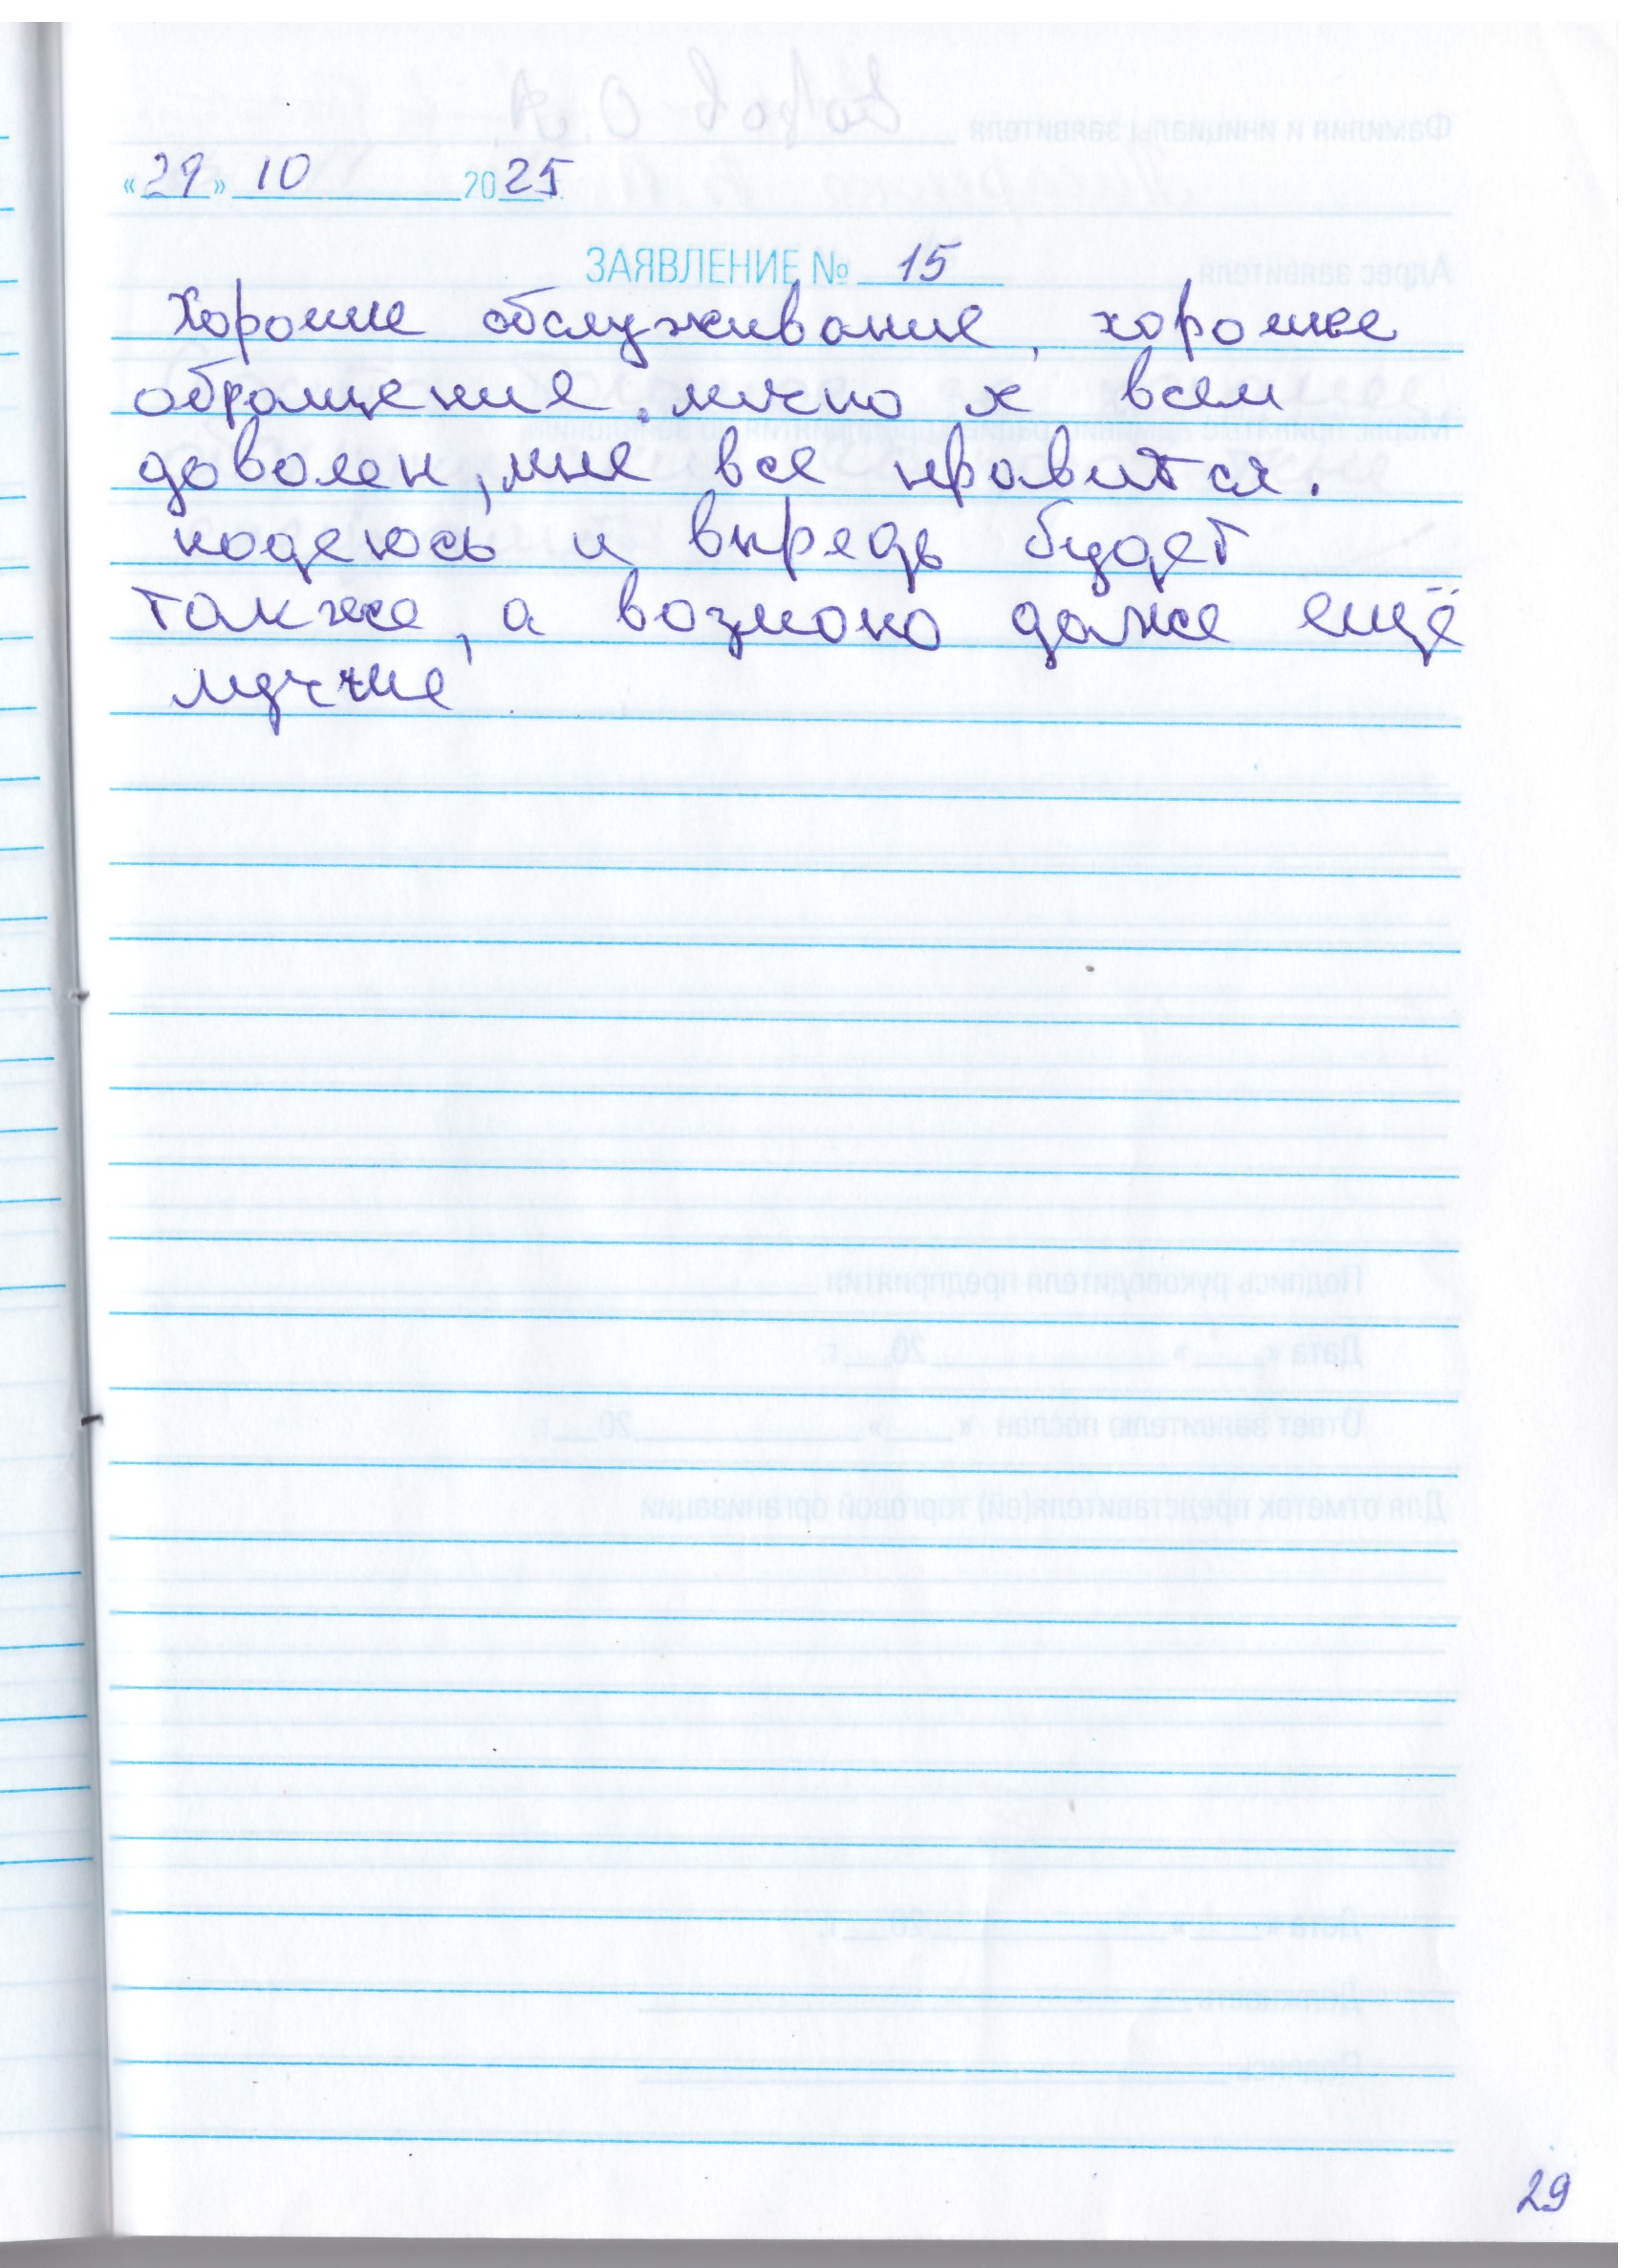 «29» 10 2025г.
ЗАЯВЛЕНИЕ № 15
Хорошие обслуживание, хорошее
обращение. лично я всем
доволен, мне все нравится.
надеюсь и впредь будет
также, а возмоно даже ещё
лучше
29